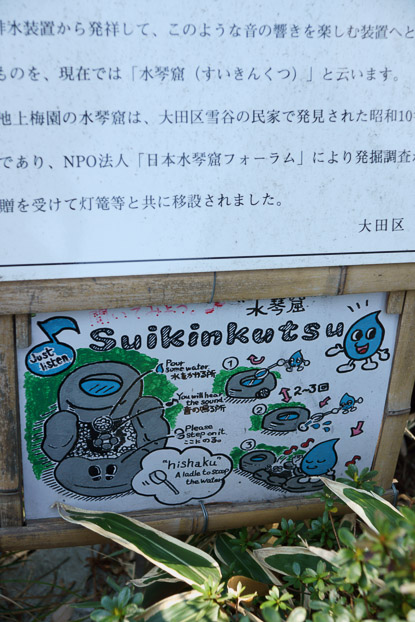 非水装置から発祥して、このような音の響きを楽しむ装置へと
ものを、現在では「水琴窟（すいきんくつ）」と云います。
池上梅園の水琴窟は、大田区雪谷の民家で発見された昭和10
であり、NPO法人「日本水琴窟フォーラム」により発掘調査
贈を受けて灯篭等と共に移設されました。
大田区
水琴窟
Suikinkutsu
Just
listen
Pour
some water
水をかける所
You will hear
the sound
音の鳴る所
3 Please
step on it
ここにのる。
"hishaku"
A ladle to scoop
the water
①
② 2~3回
③